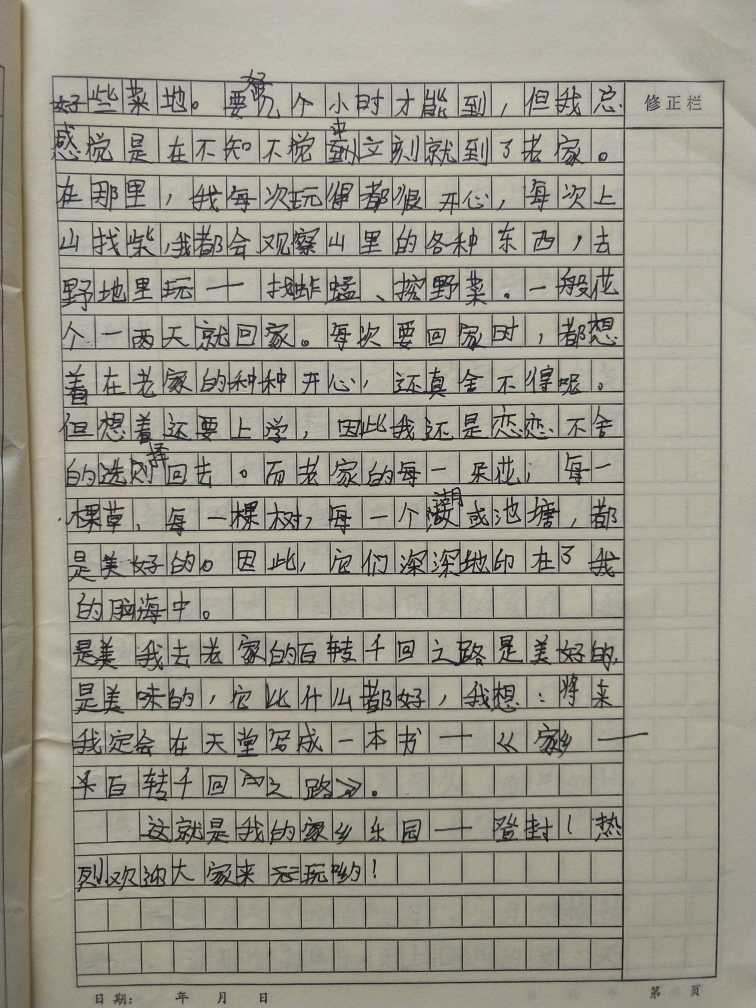 好些菜地。要好几个小时才能到，但我总
感觉是在不知不觉中立刻就到了老家。
在那里，我每次玩得都很开心，每次上
山找柴，我都会观察山里的各种东西，去
野地里玩——找蚱蜢、挖野菜。一般花
个一两天就回家。每次要回家时，都想
着在老家的种种开心，还真舍不得呢。
但想着还要上学，因此我还是恋恋不舍
的选择回去。而老家的每一朵花，每一
棵草，每一棵树，每一个湖或池塘，都
是美好的。因此，它们深深地印在了我
的脑海中。
是美 我去老家的百转千回之路是美好的，
是美味的，它比什么都好，我想：将来
我定会在天堂写成一本书——《家乡——
百转千回之路》。
这就是我的家乡乐园——登封！热
烈欢迎大家来玩哟！
修正栏
日期： 年 月 日
第 页